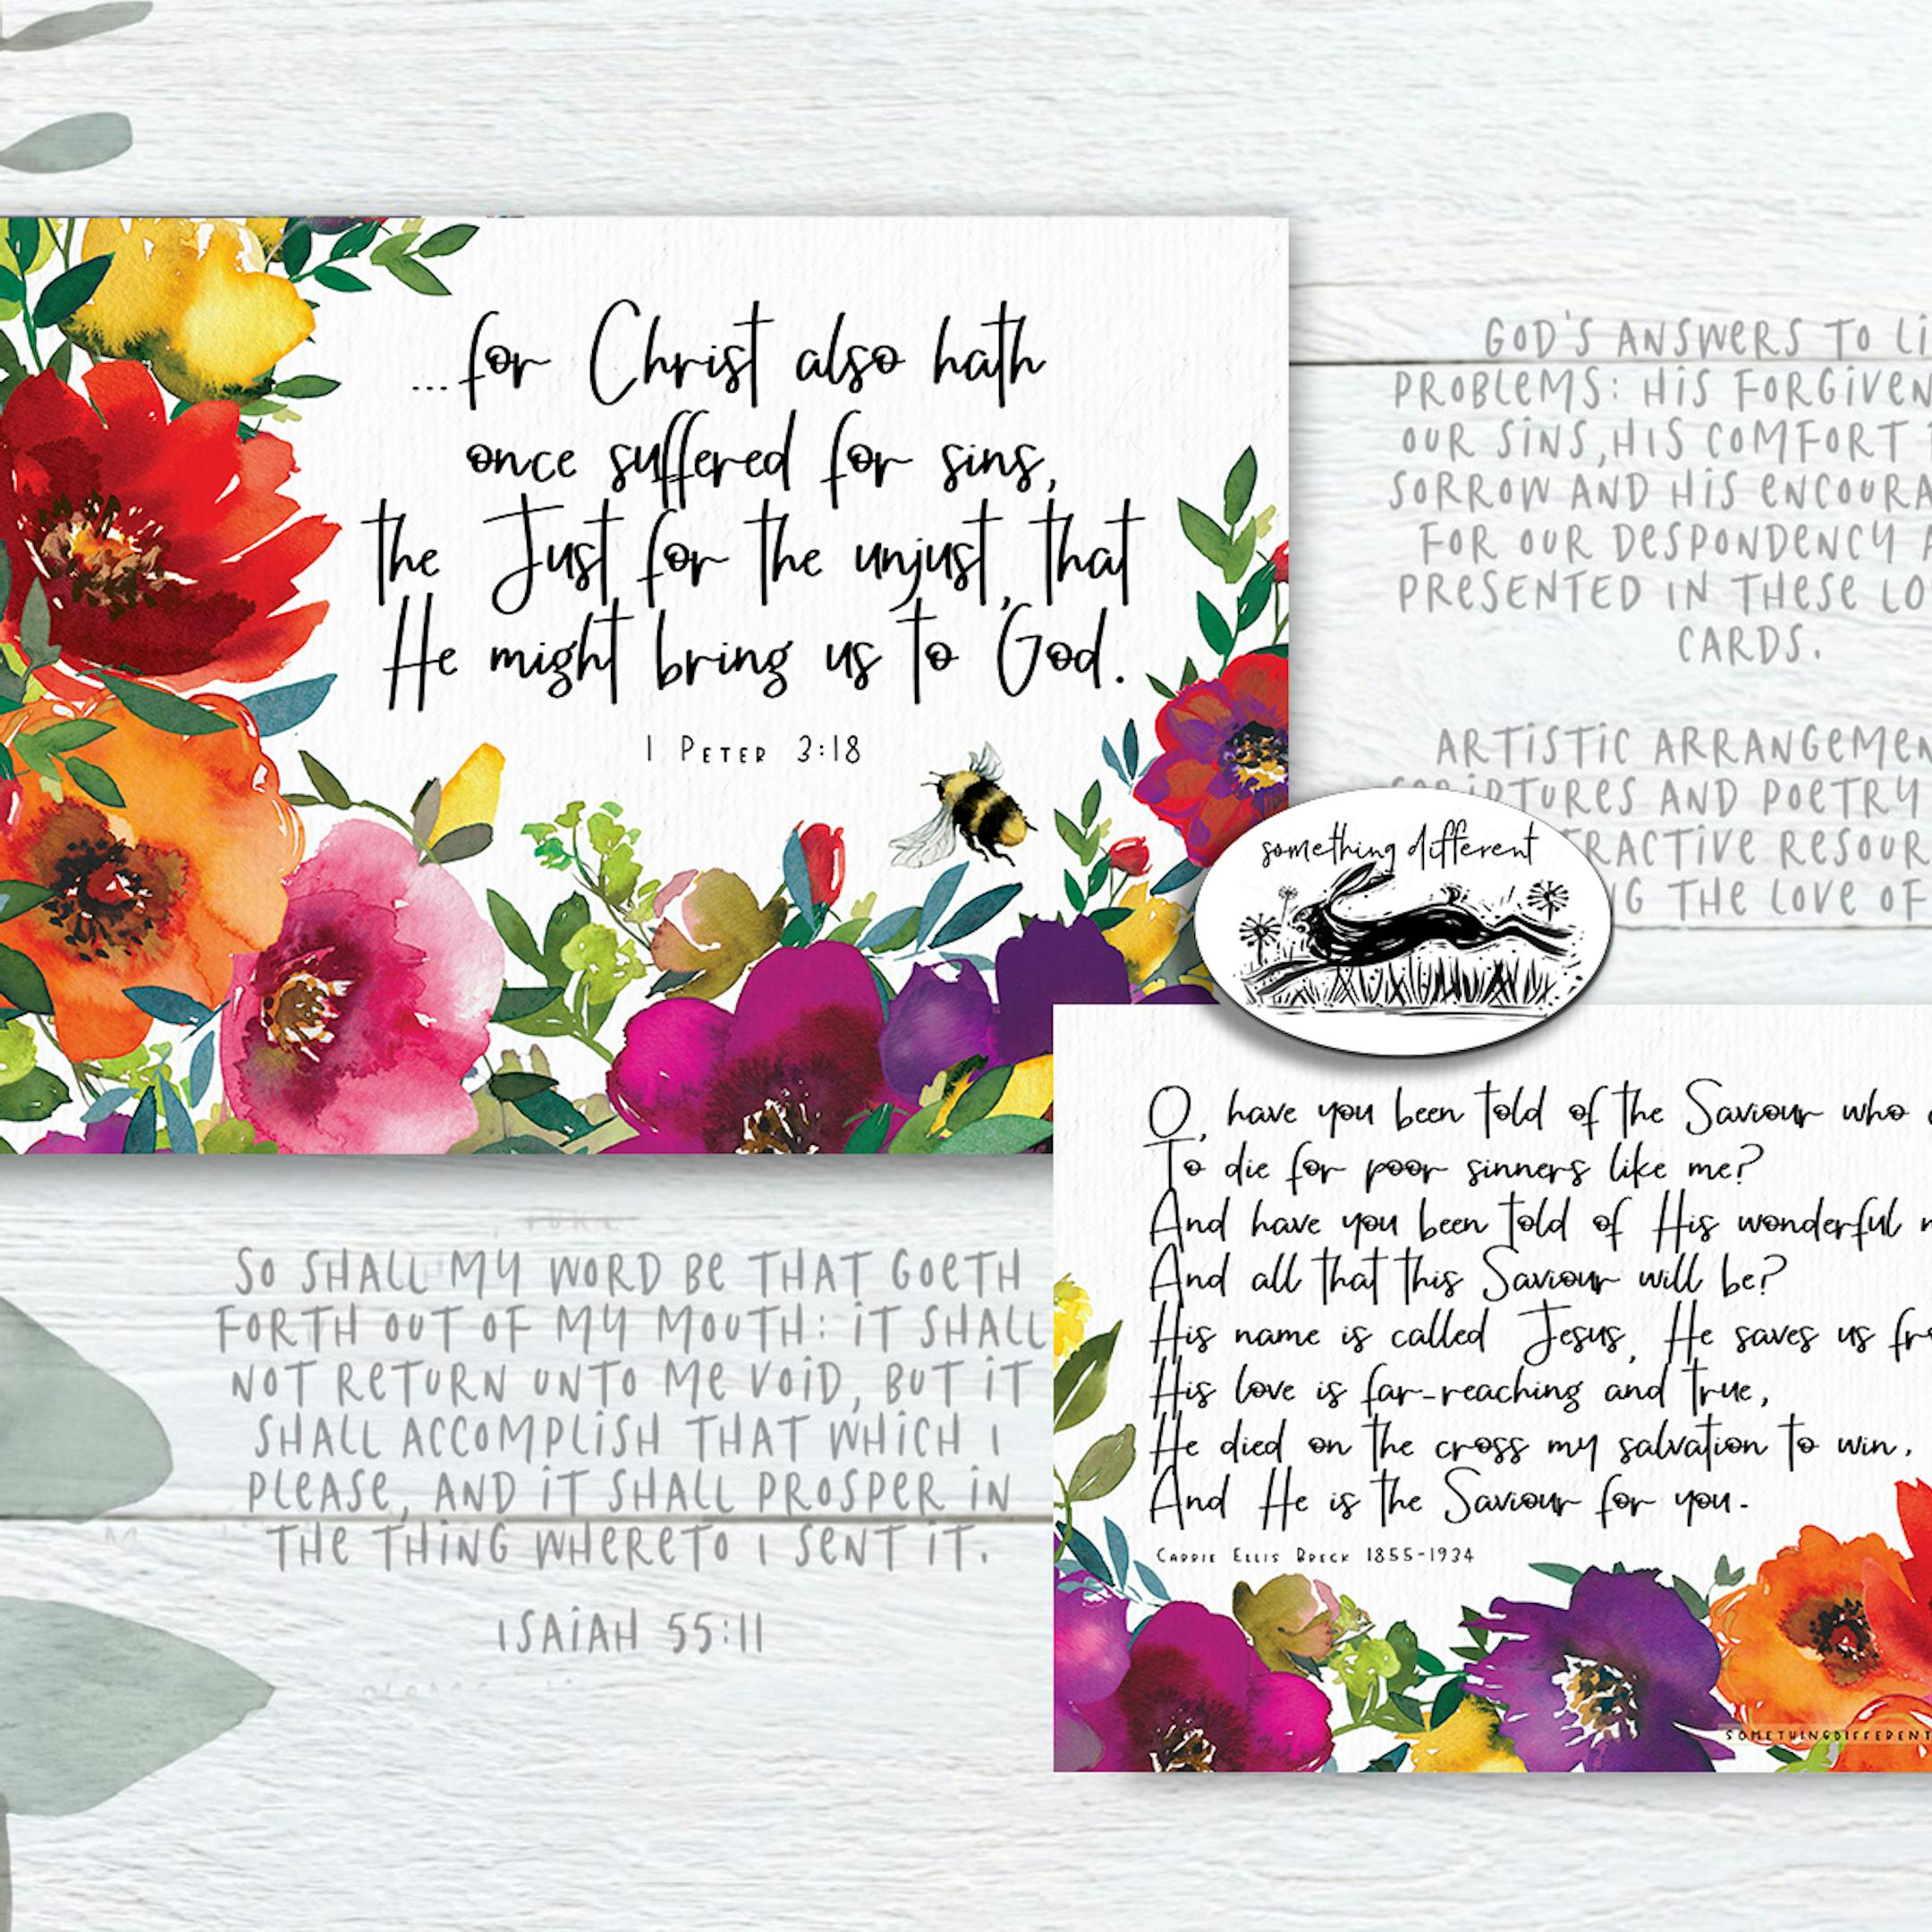 ...for Christ also hath
once suffered for sins,
the Just for the unjust, that
He might bring us to God.
1 Peter 3:18
GOD'S ANSWERS TO
PROBLEMS: HIS
OUR SINS, HIS COMFORT
SORROW AND HIS
FOR OUR DESPONDENCY
PRESENTED IN THESE
CARDS.
ARTISTIC
AND POETRY
THE LOVE OF
something different
O, have you been told of the Saviour who
To die for poor sinners like me?
And have you been told of His wonderful
And all that this Saviour will be?
His name is called Jesus, He saves us
His love is far-reaching and true,
He died on the cross my salvation to win,
And He is the Saviour for you.
Carrie Ellis Breck 1855-1934
SOMETHINGDIFFERENT
SO SHALL MY WORD BE THAT GOETH
FORTH OUT OF MY MOUTH: IT SHALL
NOT RETURN UNTO ME VOID, BUT IT
SHALL ACCOMPLISH THAT WHICH I
PLEASE, AND IT SHALL PROSPER IN
THE THING WHERETO I SENT IT.
ISAIAH 55:11